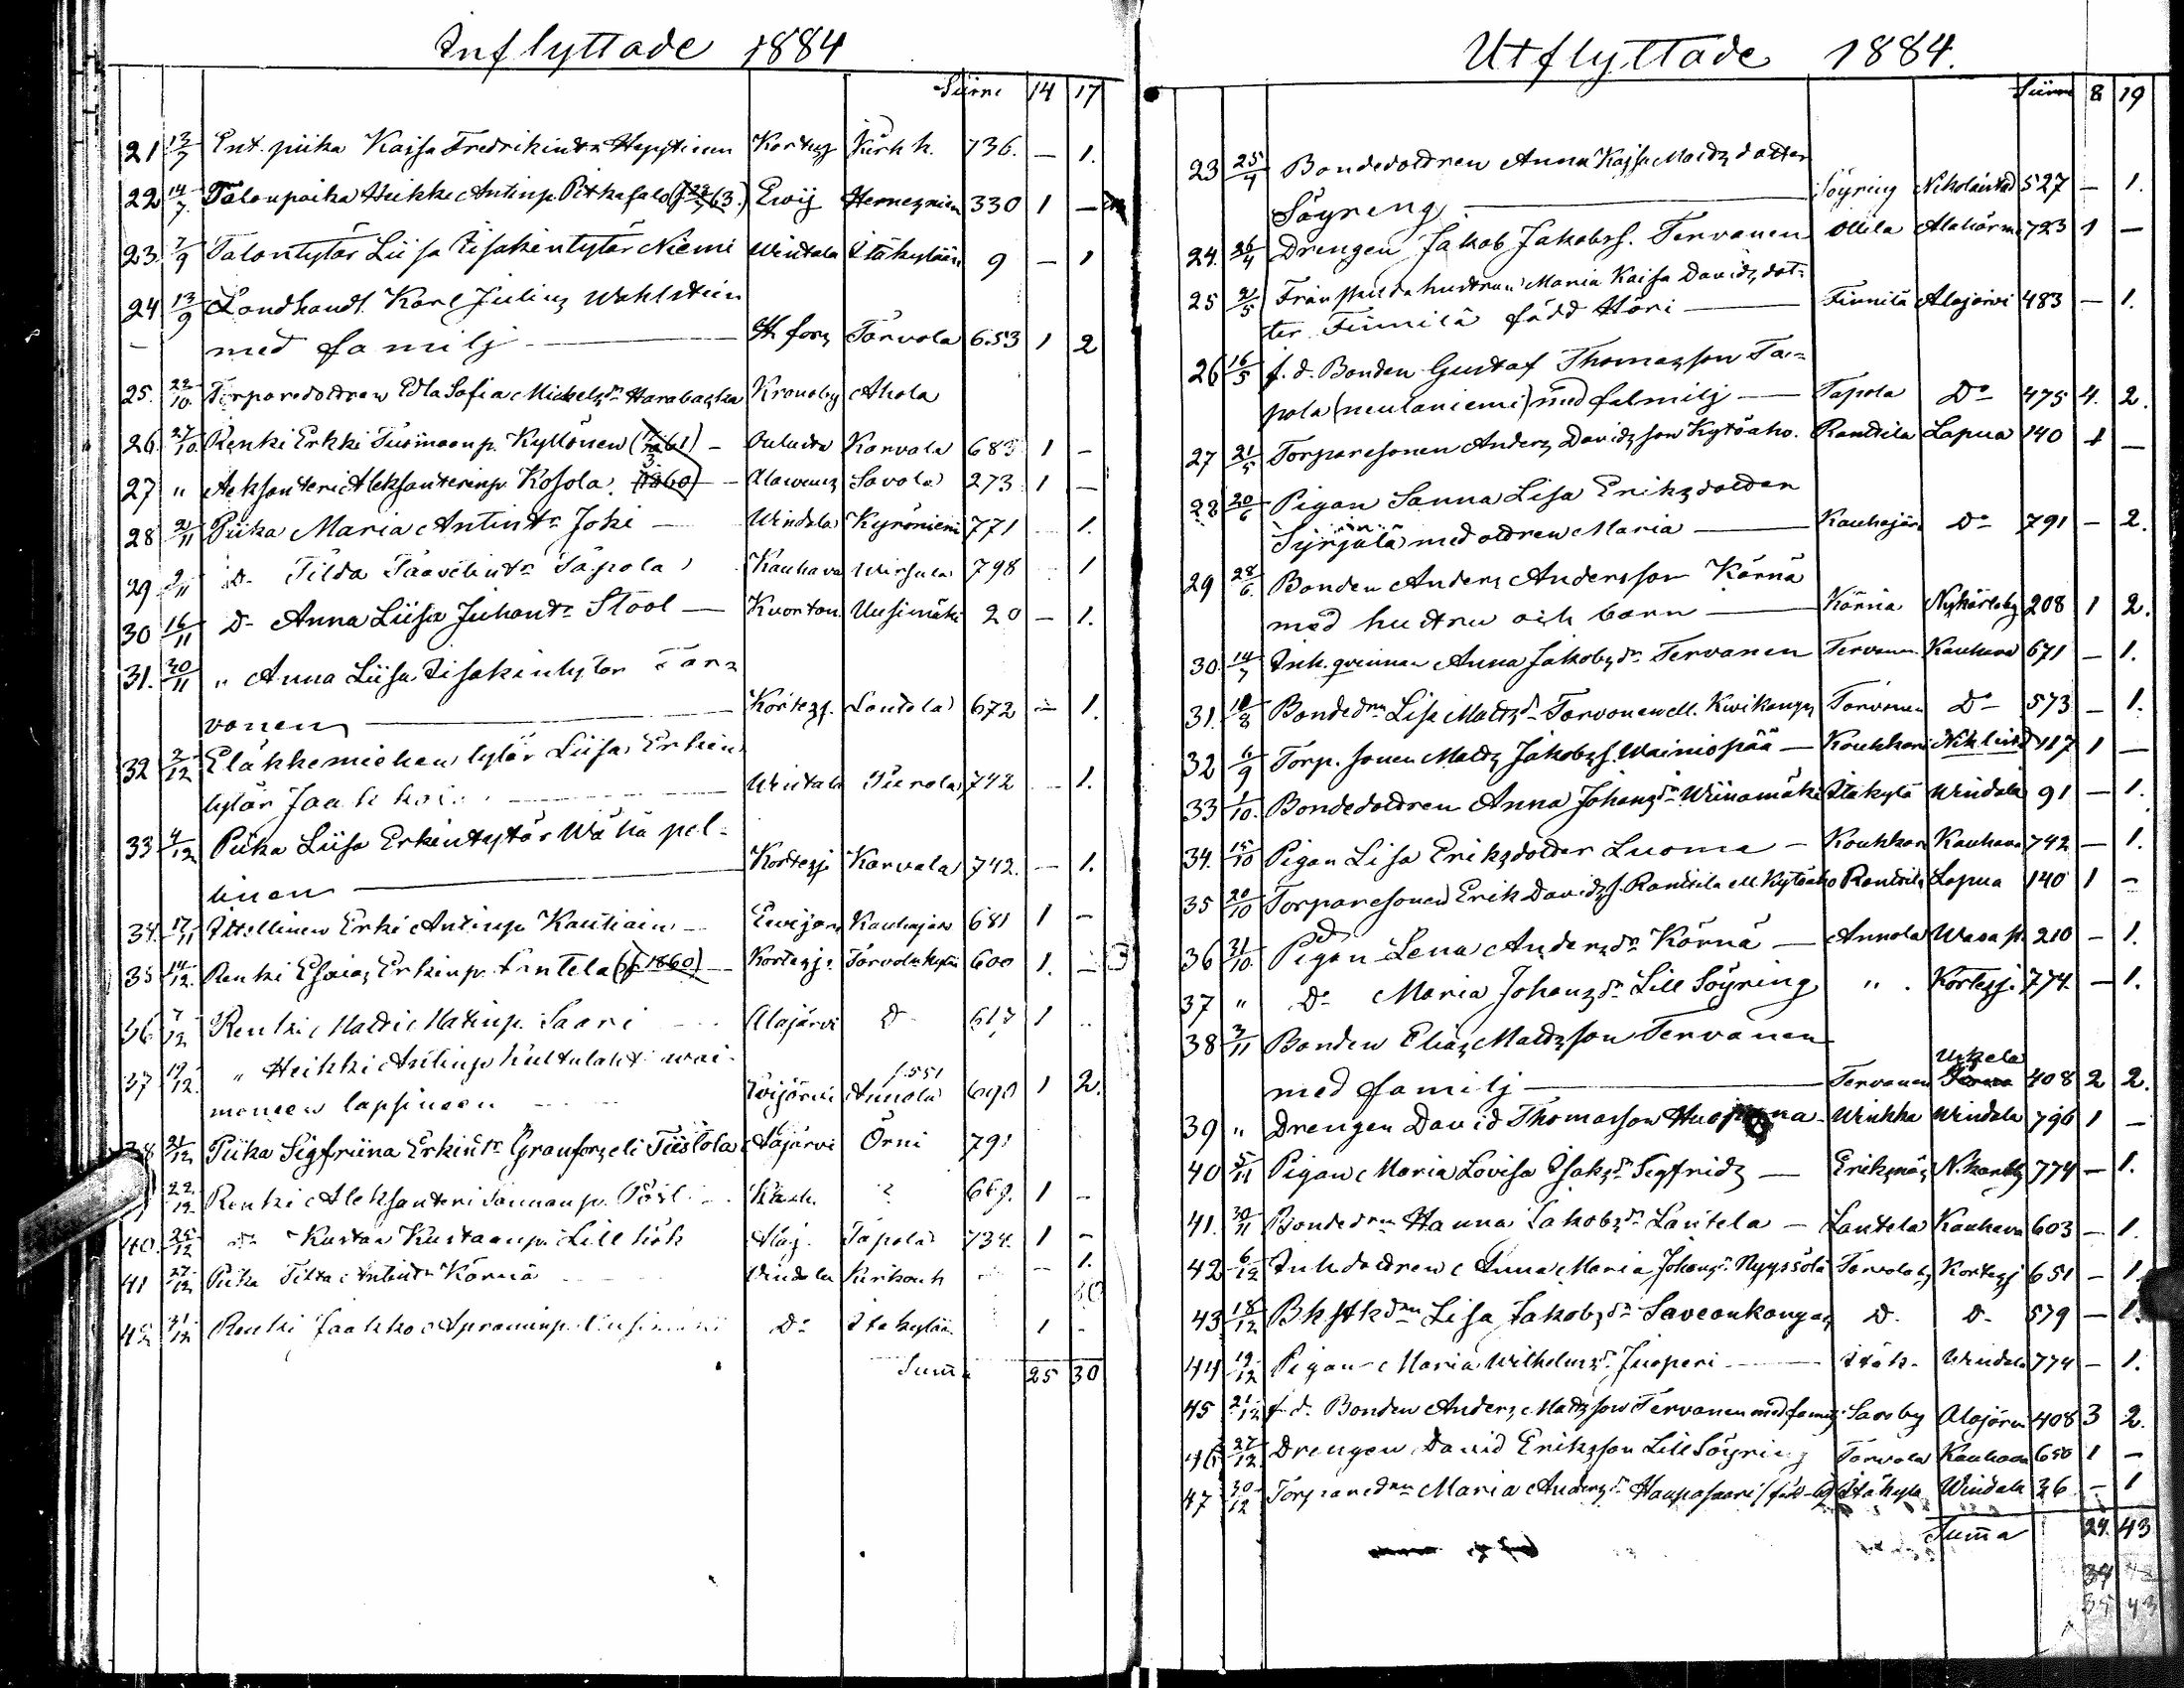 Inflyttade 1884
Siirre 14 17
21 13/7 Ent. piika Kaisa Fredrikint: Kortesj Kirkk. 736. — 1.
22 14/7 Talonpoika Heikki Antinp. Pitkäsalo Ewij 330 1 —
23. 7/9 Talontytär Liisa Iisakintytär Niemi Windala Itäkylään 9 — 1
24 13/9 Landhandl. Karl Julius Wahlstein
— med familj — H:fors Tarvola 653 1 2
25. 22/10 Torparedottren Edla Sofia Mickelsdr Harabacka Kronoby Ahola
26. 27/10 Renki Erkki Tuomaanp. Kyllönen Karvala 683 1 -
27 " Aleksanteri Aleksanterinp. Kosola. (1860) — Savola 273 1 —
28 2/11 Piika Maria Antint: Joki — Windala Kyröniemi 771 1.
29 9/11 D: Tilda Taavetint: Tapola Kauhava Wirsula 798 1
30 16/11 D: Anna Liisa Juhont: Stool — Kuortan Uusimäki 20 — 1.
31. 30/11 " Anna Liisa Iisakintytär Tar=
vonen — Kortesj. Lantola 672 — 1.
32 2/12 Eläkkemiehen tytär Liisa Erkin
tytär Jaakkoi Windala 742 1.
33 4/12 Piika Liisa Erkintytär Wähäpel-
tinen — Kortesj Karvala 742. — 1.
34. 17/11 Itsellinen Erki Antinp. Kautiain — Ewijärv Kauhajärv 681 1 -
35 14/12. Renki Esaias Erkinp. Lantela (f. 1860) — Kortesj. 600 1. —
36 7/12 Renki Matti Matinp. Saari Alajärvi D 617 1
37 19/12. " Heikki Antinp. wai-
moneen lapsineen Ewijärvi Annola 690 1 2.
38 21/12 Piika Sigfriina Erkint: Granfors eli Tiistola Alajärvi Örni 791
22/12 Renki Aleksanteri Sannanp. ? 669. 1 -
40. 25/12 D: Kustaa Kustaanp. Lillbäk Alaj. Tapola 734. 1 -
41 27/12 Piika Tilta Antint: Körnä Windala Kirkonk — 1.
42 31/12 Renki Jaakko D: Itäkylään 1 -
Summa 25 30
Utflyttade 1884.
Siirre 8 19
23 25/4 Bondedottren Anna Kajsa Matsdotter
Söyring — Söyring Nikolaistad 527 — 1.
24. 26/4 Drengen Jakob Jakobss. Tervanen Ollila Alahärm 723 1 —
25 2/5 Frånskilda hustrun Maria Kaisa Davidsdot-
ter Finnilä född Häri — Finnilä Alajärvi 483 — 1.
26 16/5 f. d. Bonden Gustaf Thomasson Ta=
pola (neulaniemi) med familj — Tapola D: 475 4. 2.
27 21/5 Torparesonen Anders Davidsson Kytöaho. Rantila Lapua 140 1 —
28 20/6 Pigan Sanna Lisa Eriksdotter
Syrjälä med dottren Maria — Kauhajärv D: 791 — 2.
29 28/6. Bonden Anders Andersson Körnä
med hustru och barn — Körnä Nykarleby 208 1 2.
30. 14/7 Inh. qvinnan Anna Jakobsdr Tervanen Tervanen Kauhava 671 — 1.
31. 18/8 Bonded:rn Lisa Matsd: Tarvonen ell. Kivikangas Tarvonen D: 573 — 1.
32 6/9 Torp. sonen Matts Jakobss. Wainiopää — Koukkari 117 1 —
33 1/10. Bondedottren Anna Johansdr Wiinamäki Itäkylä Windala 91 — 1.
34. 15/10 Pigan Lisa Eriksdotter Luoma — Koukkari Kauhava 742 — 1.
35 20/10 Torparesonen Erik Davidss. Rantila ell Kytöaho Rantila Lapua 140 1 -
36 31/10. Pigan Lena Andersdr Körnä — Annola Wasa st. 210 — 1.
37 " D: Maria Johansdr Lill Söyring " Kortesj. 774. — 1.
38 3/11 Bonden Elias Mattsson Tervanen
Uksela
med familj — Tervanen 408 2 2.
39 " Drengen David Thomasson Winkka Windala 796 1 —
40 5/11 Pigan Maria Lovisa Isaksdr Segfrids — Eriksnäs N.karleby 774 — 1.
41. 30/11 Bonded:rn Hanna Jakobsdr Lantela — Lantela Kauhava 603 — 1.
42 6/12 Inh. dottren Anna Maria Johansdr Nyyssölä Tarvola by Kortesj 651 — 1.
43 18/12 Lisa Jakobsdr Saveonkangas D: D: 579 — 1.
44 19/12 Pigan Maria Wilhelmsdr Juoperi — Itäk. Windala 774 — 1.
45 21/12 f. d. Bonden Anders Mattsson Tervanen med familj. Saroby Alajärvi 408 3 2.
46 27/12. Drengen David Eriksson Lill Söyring Tarvola Kauhava 650 1 —
47 30/12 Torpared:rn Maria Andersdr Haapasaari Itäkylä Windala 26 — 1
Summa 24. 43
34 42
35 43